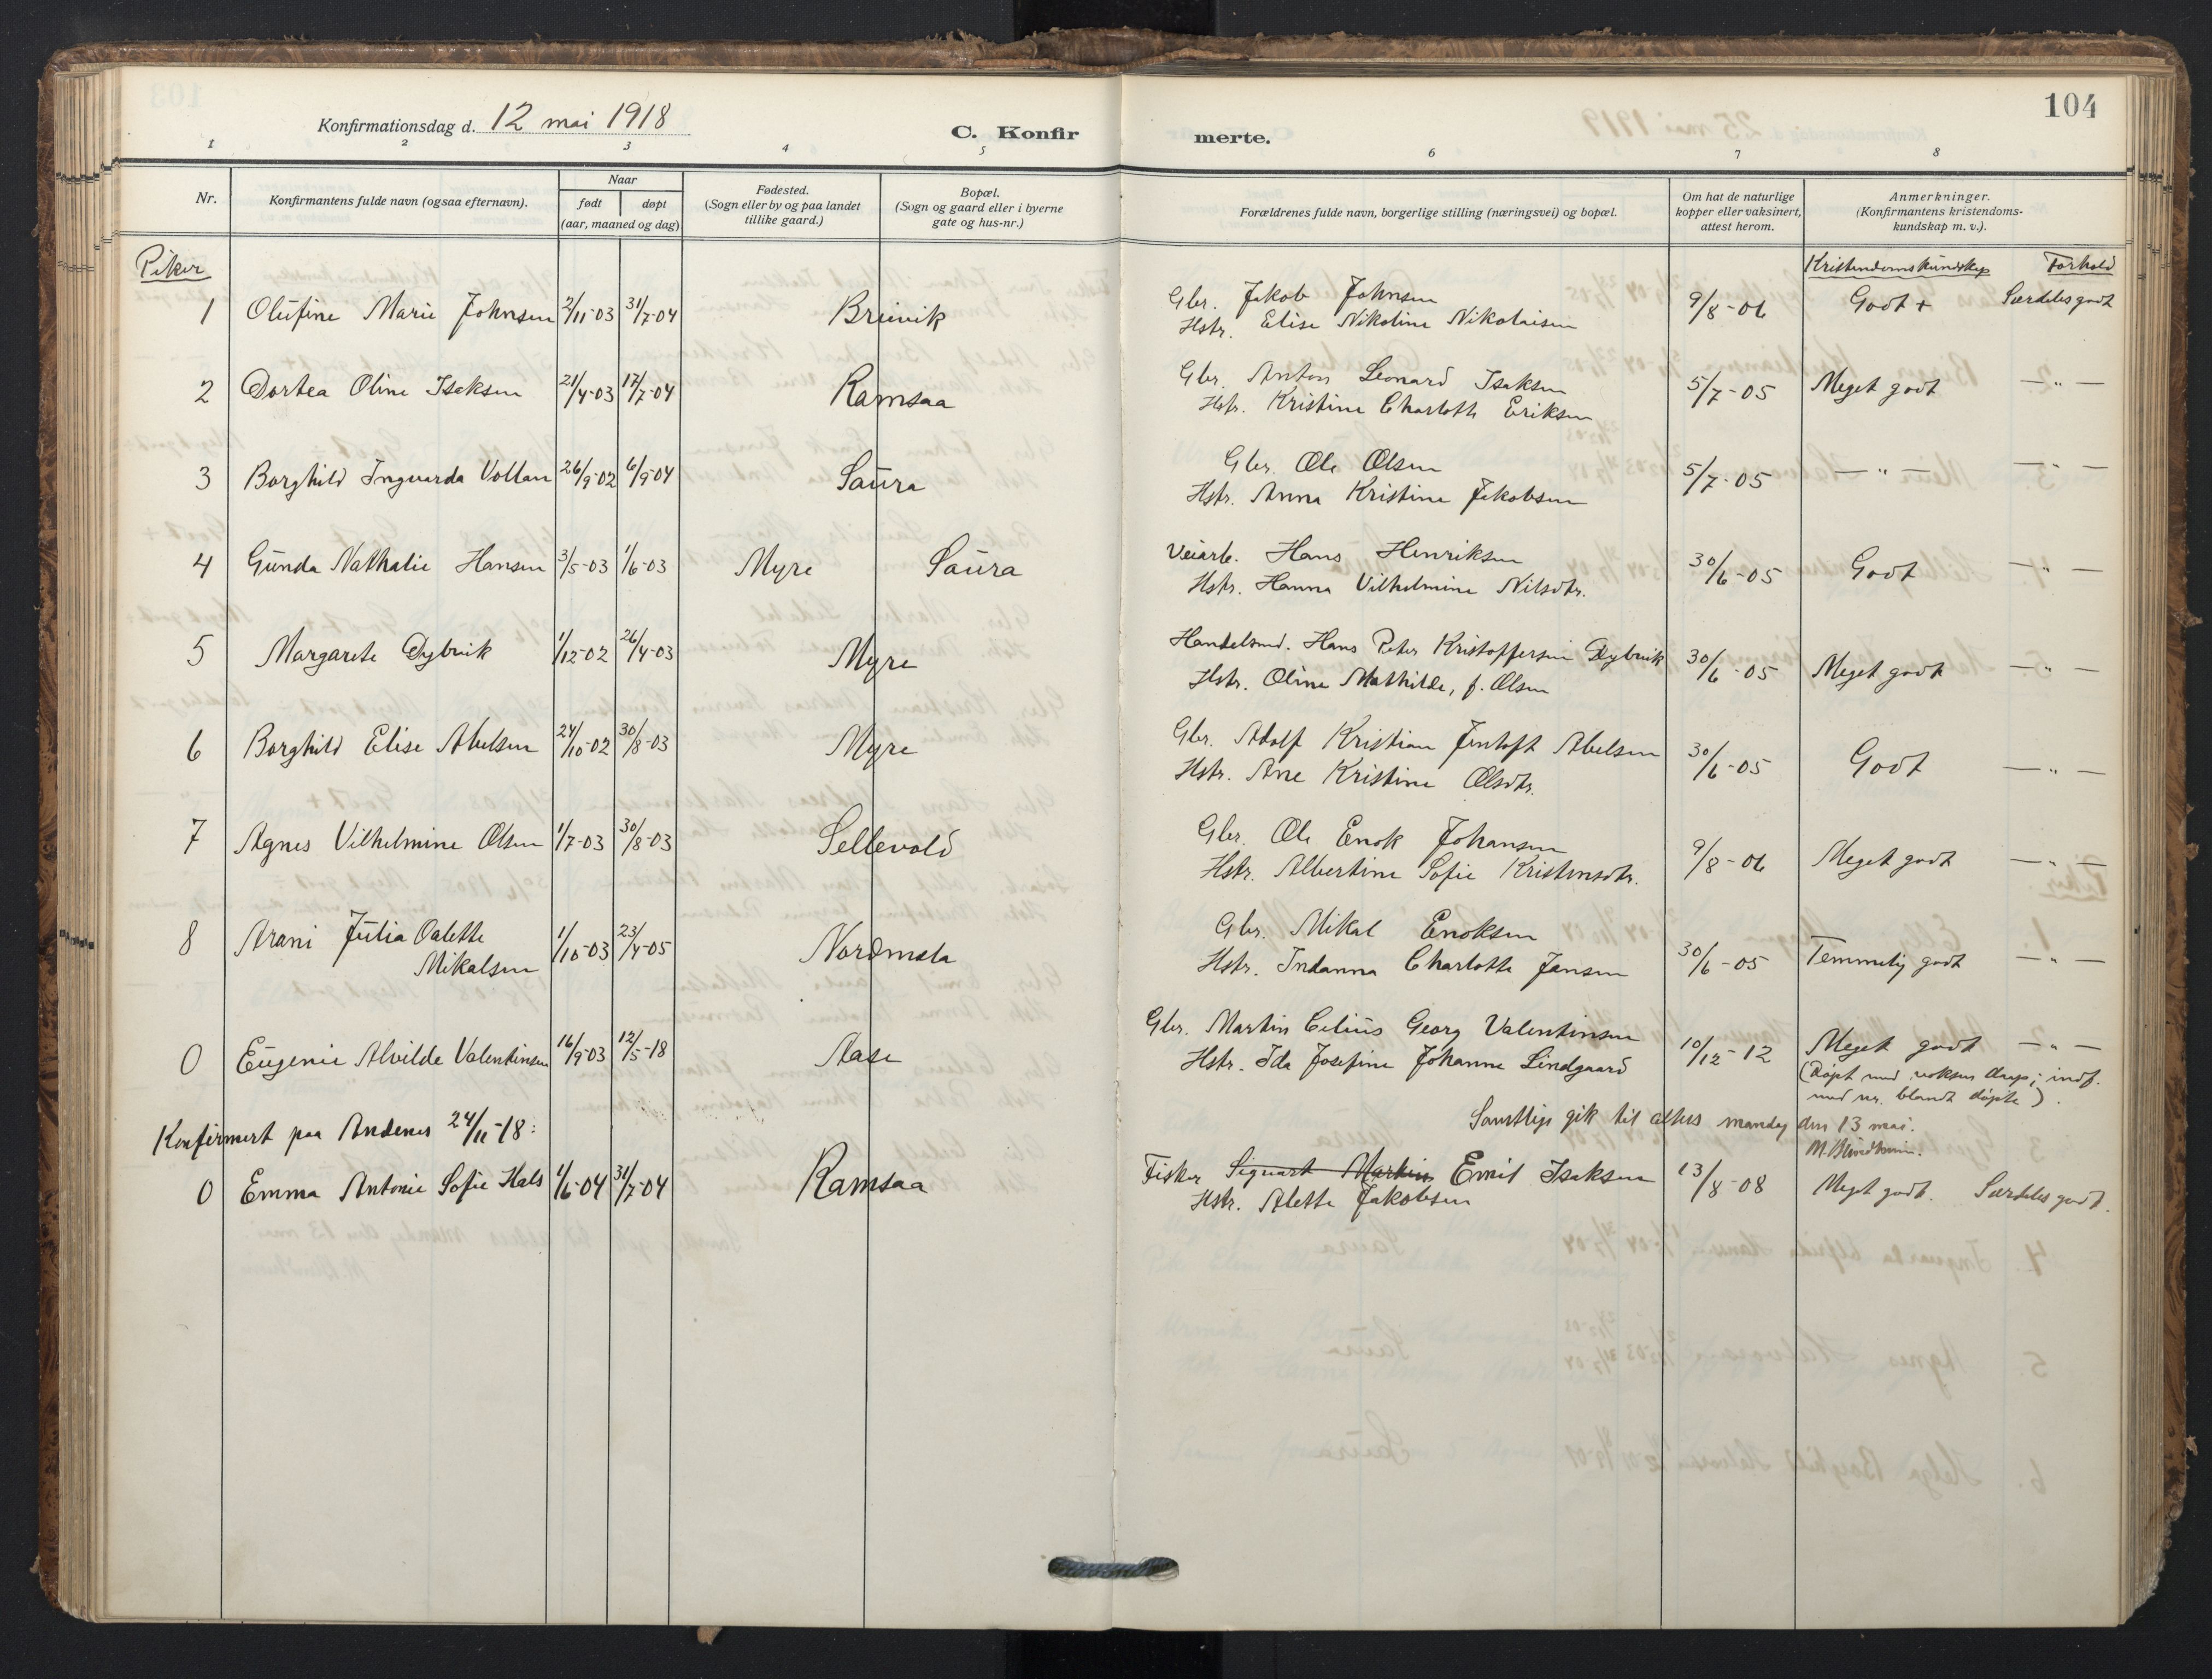 104
Konfirmationsdag d. 12 mai 1918
C. Konfirmerte.
1 2 3 4 5 6 7 8
Nr.
Konfirmantens fulde navn (ogsaa efternavn).
Naar
født døpt
(aar, maaned og dag)
Fødested.
(Sogn eller by og paa landet
tillike gaard.)
Bopæl.
(Sogn og gaard eller i byerne
gate og hus-nr.)
Forældrenes fulde navn, borgerlige stilling (næringsvei) og bopæl.
Om hat de naturlige
kopper eller vaksinert,
attest herom.
Anmerkninger.
(Konfirmantens kristendoms-
kundskap m. v.).
Piker
Kristendomskundskap Forhold
1 Olufine Marie Johnsen 2/11-03 31/7-04 Breivik Gbr. Jakob Johnsen 9/8-06 Godt + Særdeles godt
Hstr. Elise Nikoline Nikolaisen
2 Dortea Oline Isaksen 21/4-03 17/7-04 Ramsaa Gbr. Anton Leonard Isaksen 5/7-05 Meget godt — " —
Hstr. Kristine Charlotte Eriksen
3 Borghild Ingvarda Vollan 26/9-02 6/9-04 Saura Gbr. Ole Olsen 5/7-05 — " — — " —
Hstr. Anna Kristine Jakobsen
4 Gunda Nathalie Hansen 3/5-03 1/6-03 Myre Saura Veiarb. Hans Henriksen 30/6-05 Godt — " —
Hstr. Hanna Vilhelmine Nilsdtr.
5 Margarete Dybvik 1/12-02 26/4-03 Myre Handelsmd. Hans Peter Kristoffersen Dybvik 30/6-05 Meget godt — " —
Hstr. Oline Mathilde, f. Olsen
6 Borghild Elise Abelsen 24/10-02 30/8-03 Myre Gbr. Adolf Kristian Jentoft Abelsen 30/6-05 Godt — " —
Hstr. Ane Kristine Olsdtr.
7 Agnes Vilhelmine Olsen 1/7-03 30/8-03 Sellevold Gbr. Ole Enok Johansen 9/8-06 Meget godt — " —
Hstr. Albertine Sofie Kristensdtr.
8 Arani Julia Oalette 1/10-03 23/4-05 Nordmela Gbr. Mikal Enoksen 30/6-05 Temmelig godt — " —
Mikalsen Hstr. Indanna Charlotte Jensen
0 Eugenie Alvilde Valentinsen 16/9-03 12/5-18 Aase Gbr. Martin Celius Georg Valentinsen 10/12-12 Meget godt — " —
Hstr. Ida Josefine Johanne Lindgaard (Døpt med voksen daap; indf.
med nr. blandt døpte).
Samtlige gik til alters mandag den 13 mai.
Konfirmert paa Andenes 24/11-18:
0 Emma Antonie Sofie Hals 1/6-04 31/7-04 Ramsaa Fisker Sigvart Martin Emil Isaksen 13/8-08 Meget godt. Særdeles godt.
Hstr. Alette Jakobsen